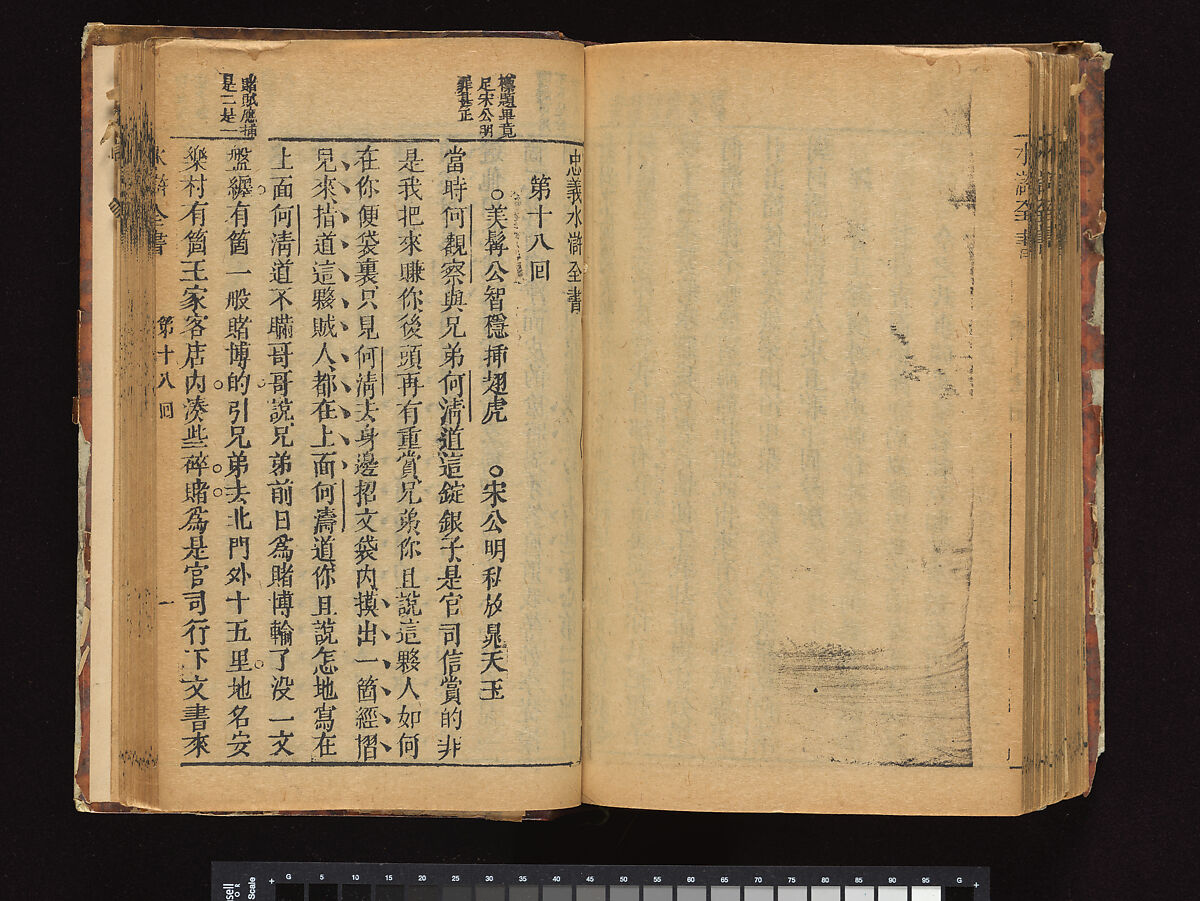 忠義水滸全書
第十八回
○美髯公智穩挿翅虎 ○宋公明私放晁天王
當時何觀察與兄弟何清道這錠銀子是官司信賞的非
是我把來賺你後頭再有重賞兄弟你且說這夥人如何
在你便袋裏只見何清去身邊招文袋內摸出一箇經摺
兒來指道這夥賊人都在上面何濤道你且說怎地寫在
上面何清道不瞞哥哥說兄弟前日爲賭博輸了没一文
盤纏有箇一般賭博的引兄弟去北門外十五里地名安
樂村有箇王家客店内湊些碎賭爲是官司行下文書來
標題畢竟
足宋公明
罪甚正
賭賊應捕
是二是一
水滸全書
第十八回
一
水滸全書